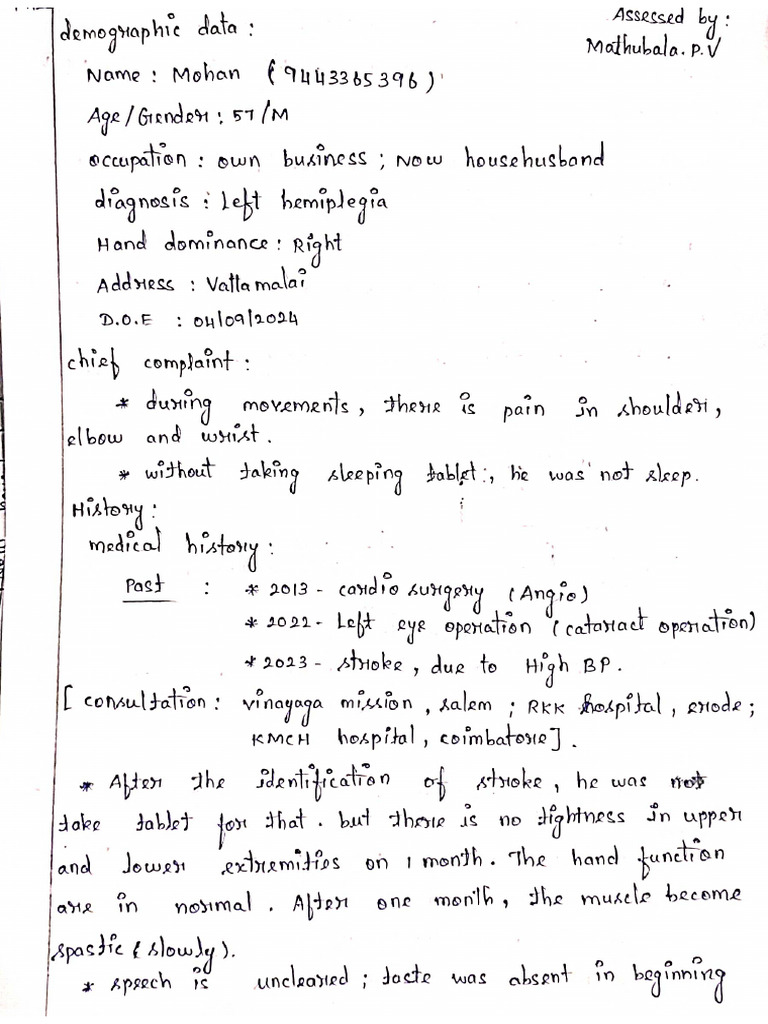 Assessed by:
Mathubala.P.V
demographic data:
Name: Mohan (9443365396)
Age/Gender: 57/M
occupation: own business; Now househusband
diagnosis: Left hemiplegia
Hand dominance: Right
Address: Vattamalai
D.O.E : 04/09/2024
chief complaint:
* during movements, there is pain in shoulder,
elbow and wrist.
* without taking sleeping tablet;, he was not sleep.
History:
medical history:
Past : * 2013 - cardio surgery (Angio)
* 2022 - Left eye operation (cataract operation)
* 2023 - stroke, due to High BP.
[consultation: vinayaga mission, salem; RKK hospital, erode;
KMCH hospital, coimbatore].
* After the identification of stroke, he was not
take tablet for that. but there is no tightness in upper
and lower extremities on 1 month. The hand function
are in normal. After one month, the muscle become
spastic (slowly).
* speech is uncleared; taste was absent in beginning